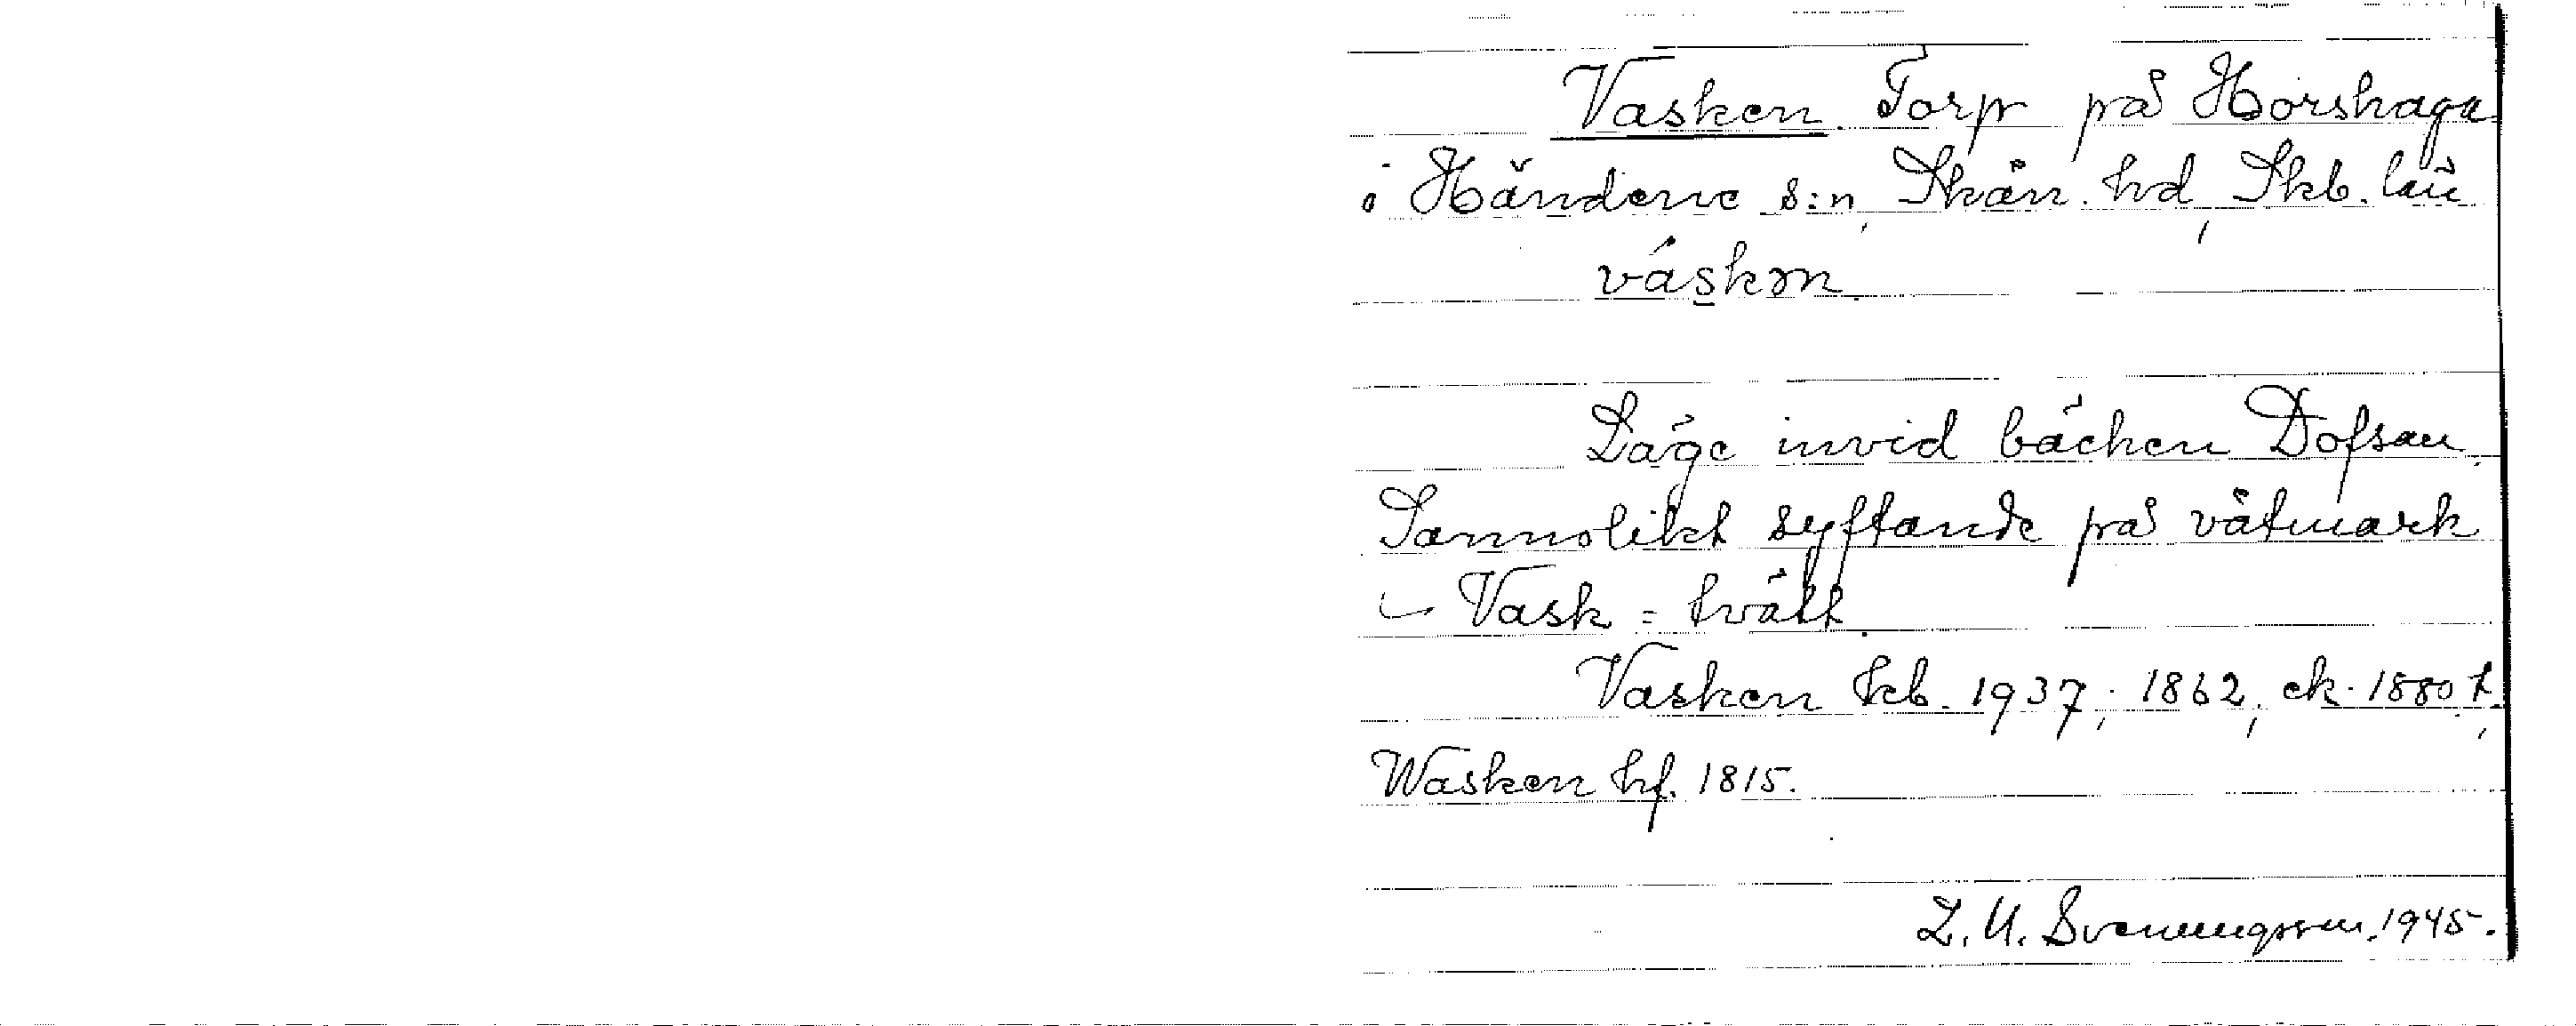 Vasken. Torp på Horshaga
i Händene s:n, Skån. hd, Skb. län
váskən.
Läge invid bäcken Dofsan.
Sannolikt syftande på våtmark
– Vask = tvätt.
Vasken kb. 1937; 1862; ek. 1880 t.;
Wasken hf. 1815.
L. U. Svenungsson. 1945.